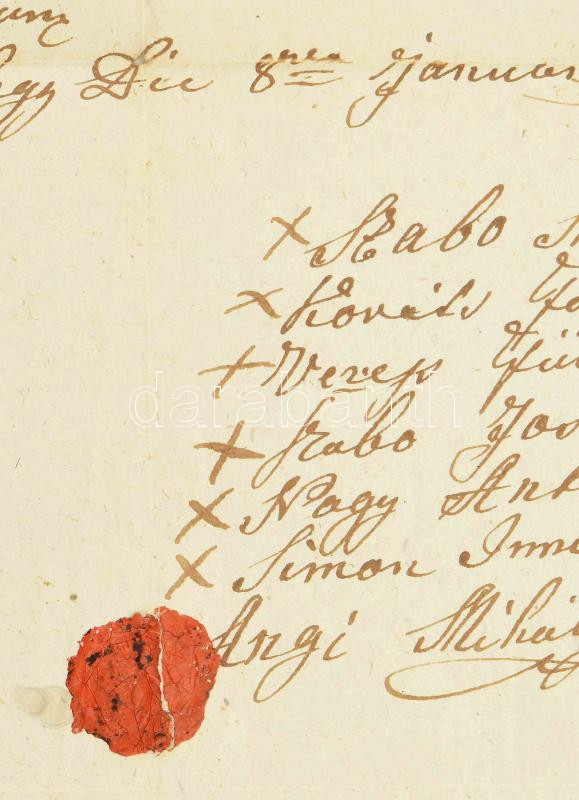 Die 8rea Januar
Szabo
Kováts
Veress
Szabo Jos
Nagy Ant
Simon Imre
Angi Mihá
darabanth